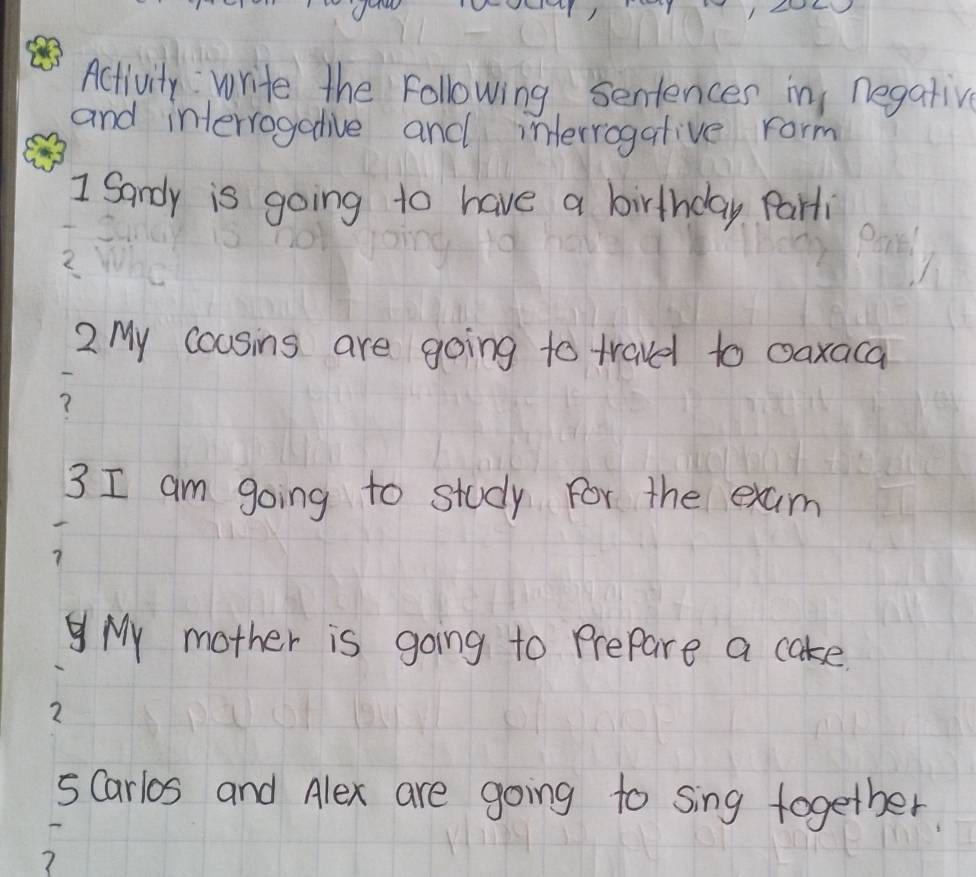 Activity: write the Following sentences in negative
and interrogative and interrogative Form
1 Sandy is going to have a birthday Parti
- Sandy is not going to have a Party
?
2 My cousins are going to travel to oaxaca
-
?
3 I am going to study For the exam
-
?
4 My mother is going to Prepare a cake.
-
?
5 Carlos and Alex are going to sing together.
-
?